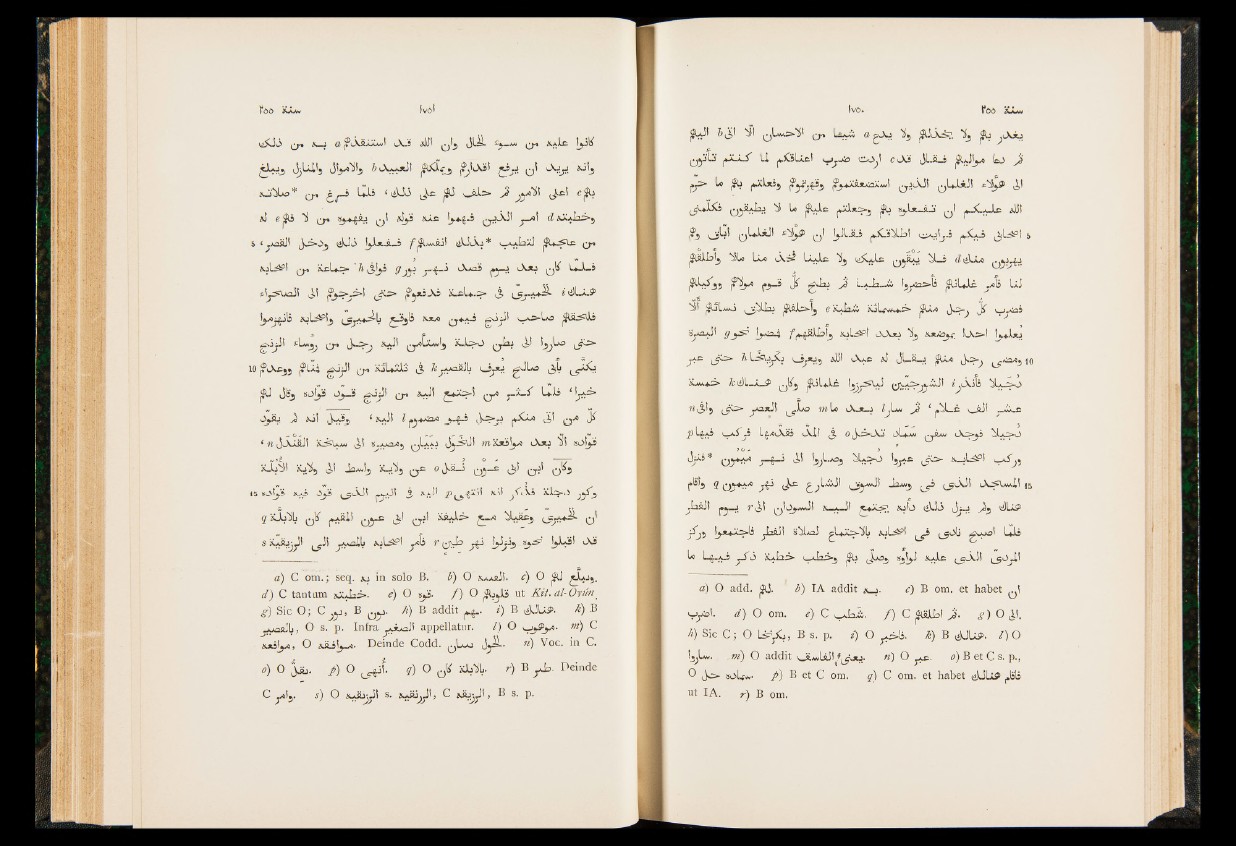 سنة ٢٥٥ ١٧٥٠
يغدر بهم ولا يخذلهم ولا يدع a شيئا من الاحسان الّا اتى b اليهم
ثم دعا مواليهم فقال قد c اردت ضرب اعناقكم لما كنتم تأتون
الى هؤلاء الغلمان الذين استضعفتموهم وقهرتموهم وفعلتم بهم ما حرّم
الله عليكم ان تفعلوه بهم وجعلتم عليهم ما لا يطيقون فكلّمنى
5 اصحابى فيكم فرايت اطلاقكم فقالوا ان هؤلاء الغلمان اُبّاق وهم
يهربون منك d فلا يُبْقون عليك ولا علينا فخُذْ منا مالا وأَطلقهم
لنا فأمر غلمانهم فأحضروا شطبا ثم بطح كلّ قوم مولاهم ووكيلهم
فضرب كلّ رجل منهم خمسمائة شطبة e وأحلفهم بطلاق نسائهم ألّا
يُعلموا احدا بموضعه ولا بعدد اصحابه وأطلقهم f فمضوا نحو g البصرة
10 ومضى رجل منهم يقال له عبد الله ويعرف بكريخا h حتى عبر
دُجَيلا فأنذر i الشورجيّين ليحرزوا غلمانهم وكان هناك k خمسة
عشر الف غلام، ثم سار l بعد ما m صلى العصر حتى وافى n
دُجيلا فوجد سفن سَماد تدخل o فى المدّ فقدّمها فركب فيها p
وركب اصحابه حتى عبروا دُجيلا وصاروا الى نهر مَيْمُون *فنزل
15 المسجد الذى فى وسط السوق الشارع على نهر ميمون q واقام
هناك ولم يزل ذلك دأبه يجتمع اليه السودان الى r يوم الفطر
فلمّا اصبح نادى فى اصحابه بالاجتماع لصلاة الفطر فاجتمعوا وركز
المردىّ الذى عليه لواؤه وصلّى بهم وخطب خطبة ذكر فيها ما
a) O add. لهم. b) IA addit به. c) B om. et habet ان
اضرب. d) O om. e) C شطب. f) C ثم اطلقهم. g) O الى.
h) Sic C; O , B s. p. i) O فاخبر. k) B هنالك. l) O
ساروا. m) O addit . n) O عبر. o) B et C s. p.,
O . p) B et C om. q) C om. et habet فاقام هنالك
ut IA. r) B om.
١٧٥١ سنة ٢٥٥
كانوا عليه من سوء الحال وان الله قد استنقذهم a به من ذلك
وانه يريد ان يرفع اقدارهم ويملّكهم العبيد b والاموال والمنازل ويبلغ
بهم c اعلى الامور ثم حلف لهم على ذلك، فلما فرغ من *صلاته
وخطبته d امر الذين فهموا عنه قوله ان يفهموه من لا فهم e له
5 من عجمهم لتطيب *بذلك انفسهم f ففعلوا ذلك ودخل القصر،
فلما كان بعد يوم قصد نهر بُور g فوافى h جماعة من اصحابه
هناك i الحميرىّ فى جماعة فدفعوهم حتى اخرجوهم الى الصحراء
فلحقهم صاحب الزنج فيمن معه فاوقع بالحميرىّ واصحابه فانهزموا
حتى صاروا الى بطن دجلة واستأمن اليه رجل من رؤساء الزنج
10 يكنّى بأبى صالح يُعرف بالقصير k فى ثلثمائة من الزنج فمنّاهم ووعدهم
خيرا، فلمّا كثر من اجتمع اليه من الزنج قوّد قوّاده وقال لهم
كلّ من اتى منكم برجل فهو مضموم l اليه، وقيل انه لم يقوّد
قوّاده الّا بعد مواقعة m الخَوَل ببَيان ومصيره الى سبخة القَنْدَل n،
وكان ابن ابى عَوْن نُقل o عن ولاية واسط الى ولاية الأُبُلّة
15 وكور دجلة فذُكر انه انتهى p اليه فى اليوم الذى قوّد فيه قوّاده
ان الحميرىّ وعَقِيلا مع خليفة ابن ابى عون المقيم كان بالابلّة q
قد اقبلوا نحوه ونزلوا نهر طِين r فأمر اصحابه بالمصير الى الرزيقيّة s
a) C om.; seq. به in solo B. b) O . c) O ويبلغ لهم.
d) C tantum خطبته. e) O قوة. f) O قلوبهم ut Kit. al-Oyún.
g) Sic O; C بور, B بون. h) B addit بهم. i) B هنالك. k) B
بالقصير, O s. p. Infra الصغير appellatur. l) O موهوب. m) C
موافعة, O موافقة. Deinde Codd. . n) Voc. in C.
o) O يقل. p) O أنهى. q) O كان بالابلة. r) B طير. Deinde
C وامر. s) O s. , C , B s. p.